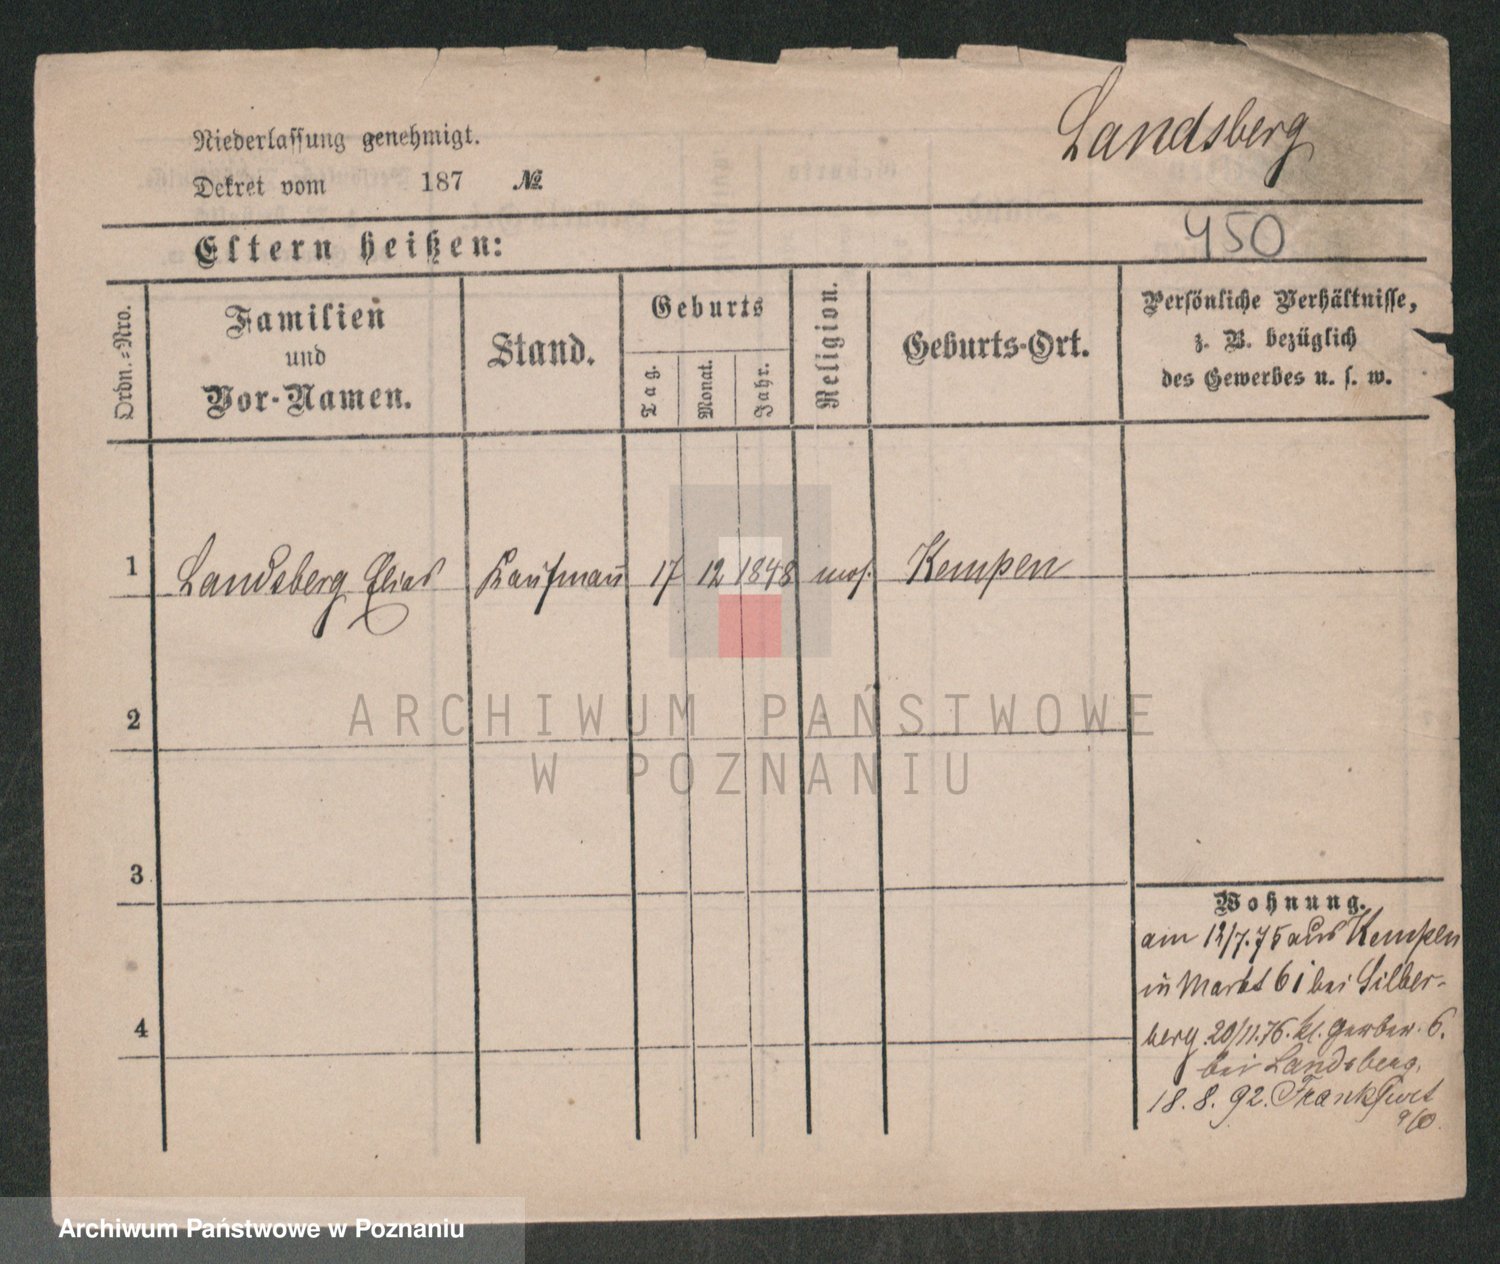 Landsberg
Niederlassung genehmigt.
Dekret vom 187 №
450
Eltern heißen:
Ordn.-Nro.
Familien
und
Vor-Namen.
Stand.
Geburts
Tag.
Monat.
Jahr.
Religion.
Geburts-Ort.
Persönliche Verhältnisse,
z. B. bezüglich
des Gewerbes u. s. w.
1 Landsberg Elias Kaufmann 17 12 1848 mos. Kempen
2
ARCHIWUM PAŃSTWOWE
W POZNANIU
3
Wohnung.
am 12/7.75 aus Kempen
in Markt 61 bei Silber-
4
berg 20/11.76. kl. Gerber. 6.
bei Landsberg.
18. 8. 92. Frankfurt
a/O.
Archiwum Państwowe w Poznaniu